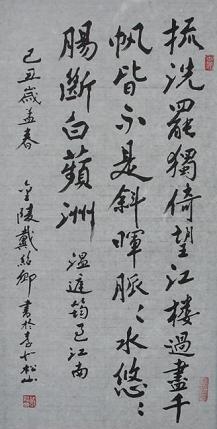 梳洗罷獨倚望江樓過盡千
帆皆不是斜暉脈〻水悠〻
腸斷白蘋洲
溫庭筠忆江南
己丑歲孟春
金陵戴紹卿書於李士松山